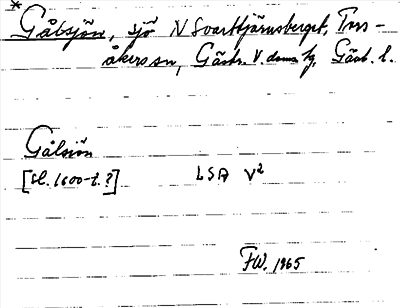 * Gålsjön, sjö N Svarttjärnsberget, Tors-
åkers sn, Gästr. V. doms hg, Gävl. l.
Gålsiön
[sl. 1600-t.?] LSA V²
FW. 1965